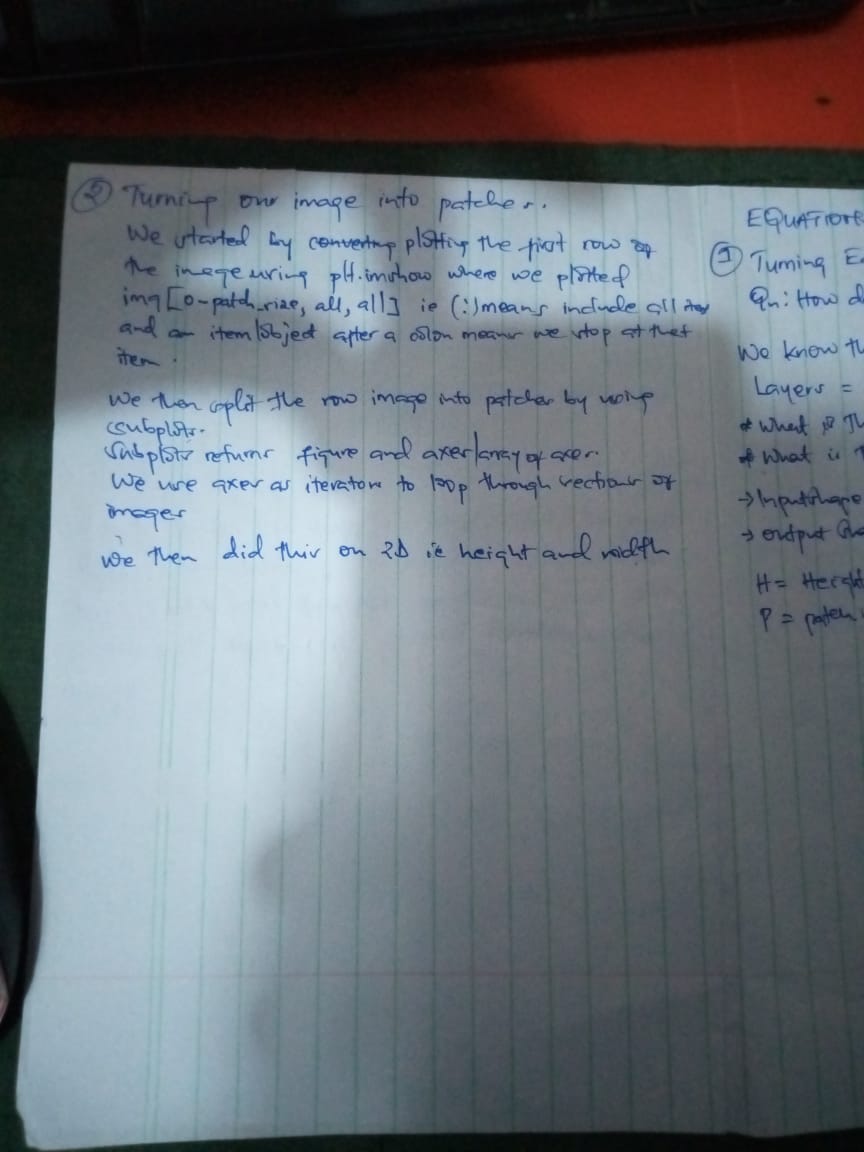 ② Turning our image into patches.
We started by converting plotting the first row of
the image using plt.imshow where we plotted
img[0-patch_size, all, all] ie (:) means include all
and an item/object after a colon means we stop at that
item.
We then split the row image into patches by using
subplots.
Subplots returns figure and axes/array of axes.
We use axes as iterators to loop through sections of
images
We then did this on 2D ie height and width
EQUATION
① Turning E
Qn: How d
We know th
Layers =
* What is Th
* What is T
→ Inputshape
→ output
H = Height
P = patch